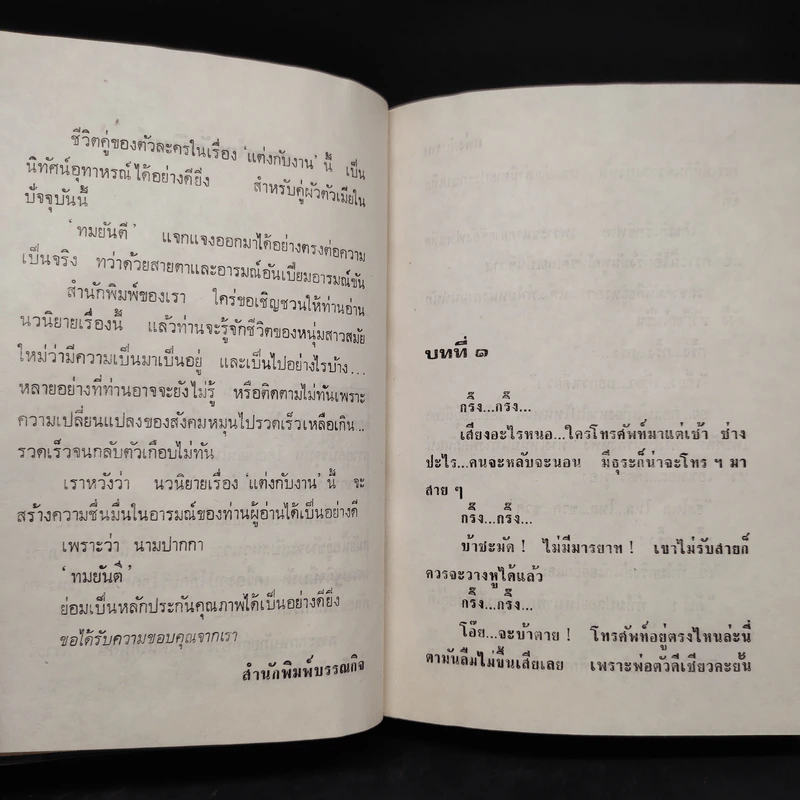 ชีวิตคู่ของตัวละครในเรื่อง 'แต่งกับงาน' นี้ เป็น
นิทัศน์อุทาหรณ์ได้อย่างดียิ่ง สำหรับคู่ผัวตัวเมียใน
ปัจจุบันนี้
'ทมยันตี' แจกแจงออกมาได้อย่างตรงต่อความ
เป็นจริง ทว่าด้วยสายตาและอารมณ์อันเปี่ยมอารมณ์ขัน
สำนักพิมพ์ของเรา ใคร่ขอเชิญชวนให้ท่านอ่าน
นวนิยายเรื่องนี้ แล้วท่านจะรู้จักชีวิตของหนุ่มสาวสมัย
ใหม่ว่ามีความเป็นมาเป็นอยู่ และเป็นไปอย่างไรบ้าง...
หลายอย่างที่ท่านอาจจะยังไม่รู้ หรือติดตามไม่ทันเพราะ
ความเปลี่ยนแปลงของสังคมหมุนไปรวดเร็วเหลือเกิน...
รวดเร็วจนกลับตัวเกือบไม่ทัน
เราหวังว่า นวนิยายเรื่อง 'แต่งกับงาน' นี้ จะ
สร้างความชื่นมื่นในอารมณ์ของท่านผู้อ่านได้เป็นอย่างดี
เพราะว่า นามปากกา
'ทมยันตี'
ย่อมเป็นหลักประกันคุณภาพได้เป็นอย่างดียิ่ง
ขอได้รับความขอบคุณจากเรา
สำนักพิมพ์บรรณกิจ
บทที่ ๑
กริ๊ง...กริ๊ง...
เสียงอะไรหนอ...ใครโทรศัพท์มาแต่เช้า ช่าง
ปะไร...คนจะหลับจะนอน มีธุระก็น่าจะโทร ฯ มา
สาย ๆ
กริ๊ง...กริ๊ง...
บ้าชะมัด ! ไม่มีมารยาท ! เขาไม่รับสายก็
ควรจะวางหูได้แล้ว
กริ๊ง...กริ๊ง...
โอ๊ย...จะบ้าตาย ! โทรศัพท์อยู่ตรงไหนล่ะนี่
ตามันลืมไม่ขึ้นเสียเลย เพราะพ่อตัวดีเชียวคะยั้น